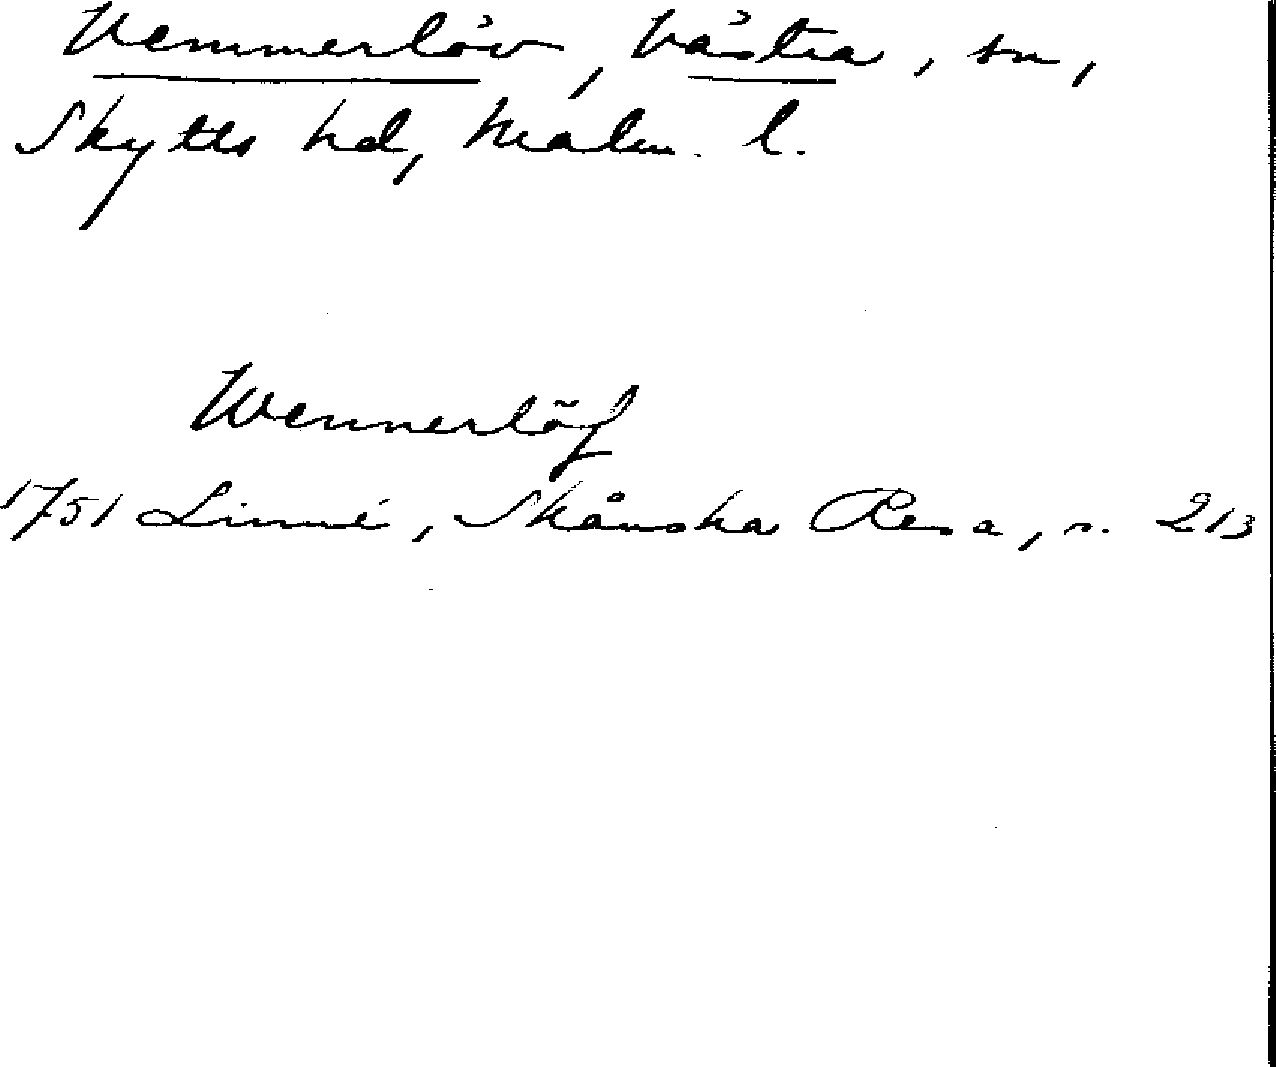 Vemmerlöv, Västra, sn,
Skytts hd, Malm. l.
Wennerlöf
1751 Linné, Skånska Resa, s. 213